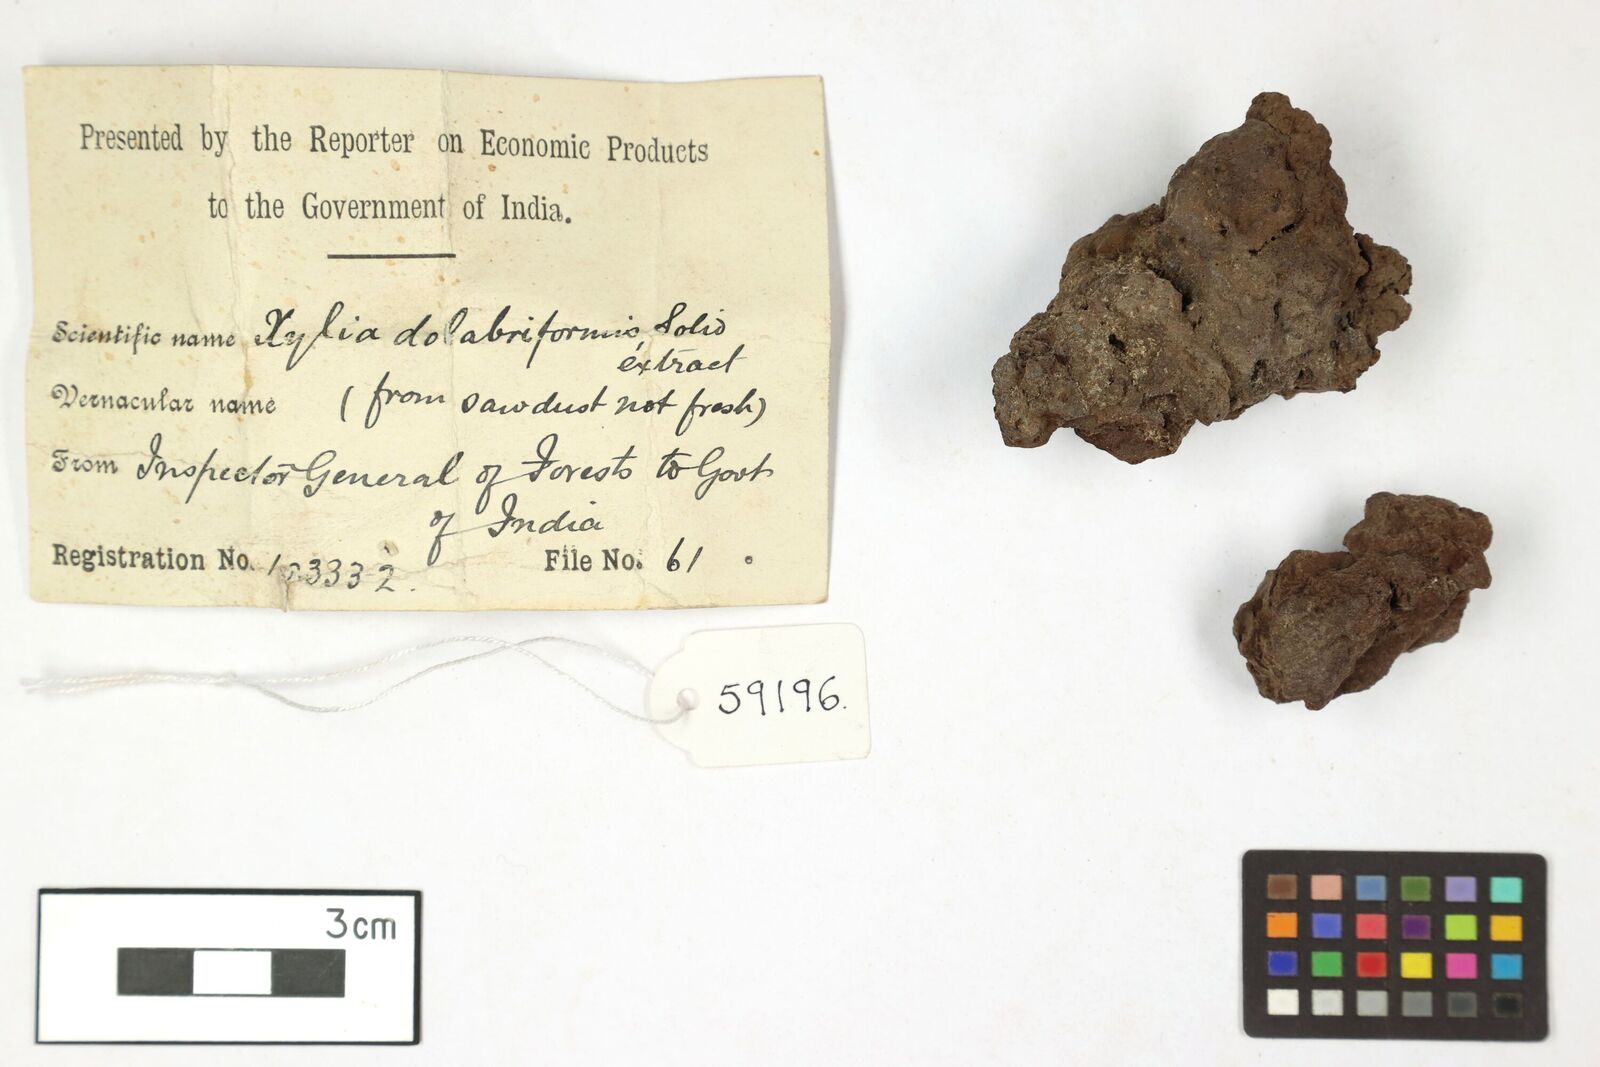 Presented by the Reporter on Economic Products
to the Government of India.
Scientific name Xylia dolabriformis Solid
extract
Vernacular name (from sawdust not fresh)
From Inspector General of Forests to Govt
of India
Registration No. 123332.
File No. 61
59196.
3cm